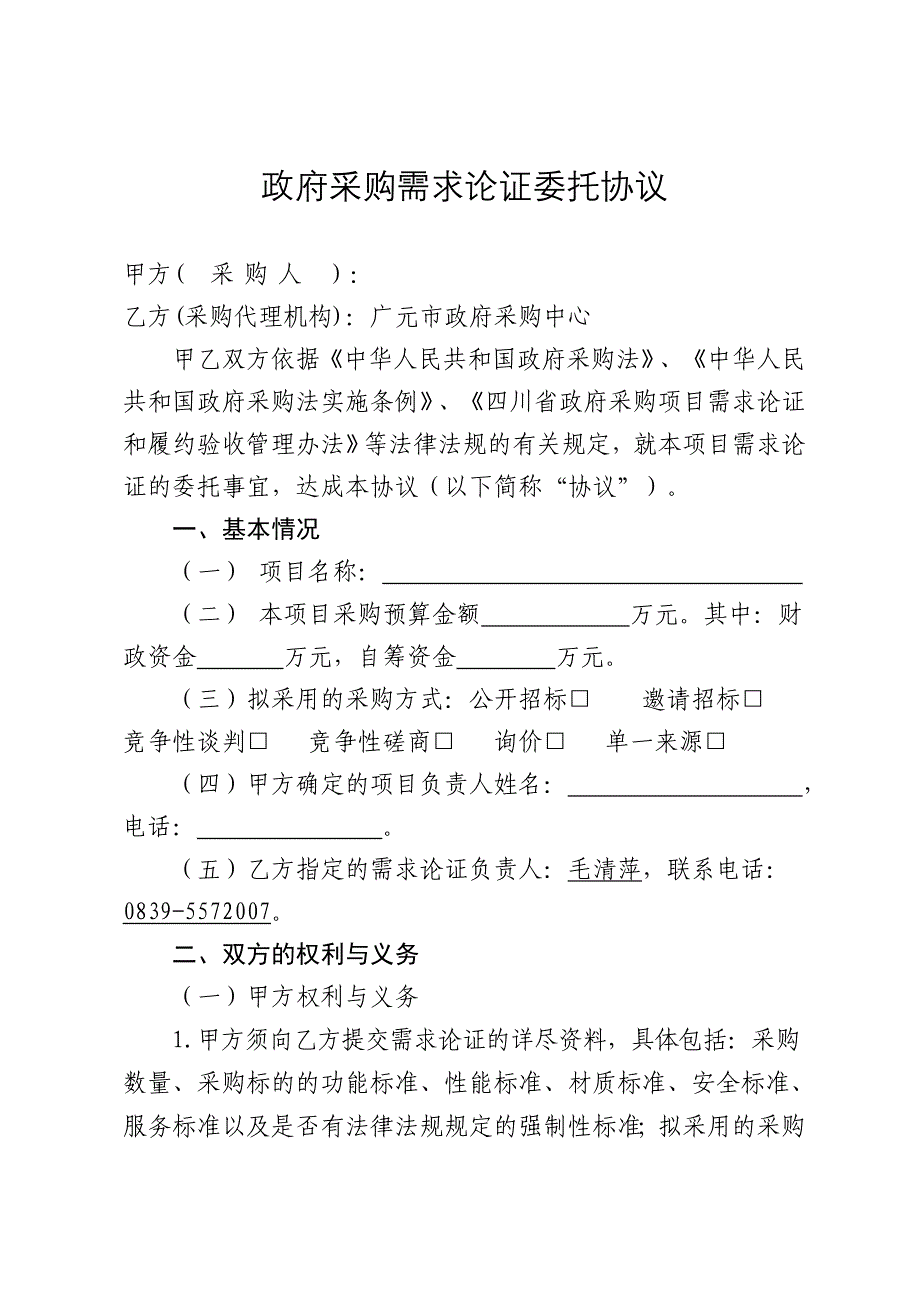 政府采购需求论证委托协议
甲方（ 采 购 人 ）：
乙方(采购代理机构)：广元市政府采购中心
甲乙双方依据《中华人民共和国政府采购法》、《中华人民
共和国政府采购法实施条例》、《四川省政府采购项目需求论证
和履约验收管理办法》等法律法规的有关规定，就本项目需求论
证的委托事宜，达成本协议（以下简称“协议”）。
一、基本情况
（一） 项目名称：
（二） 本项目采购预算金额 万元。其中：财
政资金 万元，自筹资金 万元。
（三）拟采用的采购方式：公开招标□ 邀请招标□
竞争性谈判□ 竞争性磋商□ 询价□ 单一来源□
（四）甲方确定的项目负责人姓名： ，
电话： 。
（五）乙方指定的需求论证负责人：毛清萍，联系电话：
0839-5572007。
二、双方的权利与义务
（一）甲方权利与义务
1.甲方须向乙方提交需求论证的详尽资料，具体包括：采购
数量、采购标的的功能标准、性能标准、材质标准、安全标准、
服务标准以及是否有法律法规规定的强制性标准；拟采用的采购